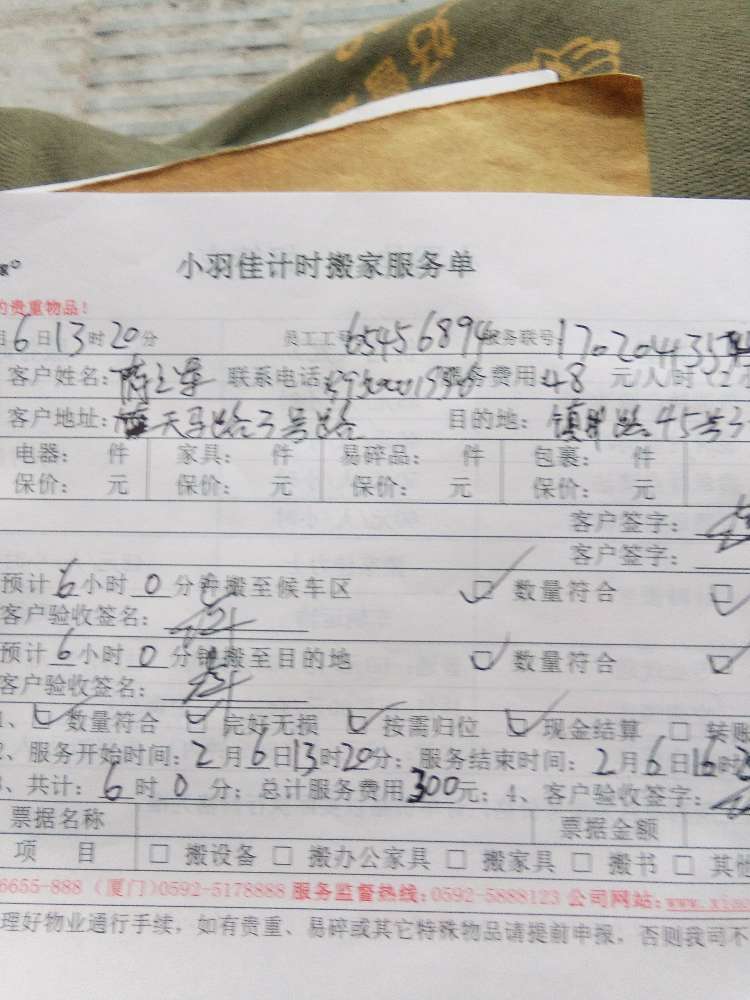 小羽佳计时搬家服务单
的贵重物品！
月6日13时20分 员工工号65456894服务联号
客户姓名： 联系电话： 服务费用：48 元/人/时
客户地址： 天马路3号 目的地：镇 路45号
电器： 件 家具： 件 易碎品： 件 包裹： 件
保价： 元 保价： 元 保价： 元 保价： 元
客户签字：
客户签字：
预计6小时0分钟搬至候车区 数量符合
客户验收签名：
预计6小时0分钟搬至目的地 数量符合
客户验收签名：
1、 数量符合 完好无损 按需归位 现金结算 转账
2、服务开始时间：2月6日13时20分；服务结束时间：2月6日16时
3、共计：6时0分；总计服务费用300元；4、客户验收签字：
票据名称 票据金额
项 目 搬设备 搬办公家具 搬家具 搬书 其他
6655-888（厦门）0592-5178888 服务监督热线：0592-5888123 公司网站：www.
理好物业通行手续，如有贵重、易碎或其它特殊物品请提前申报，否则我司不